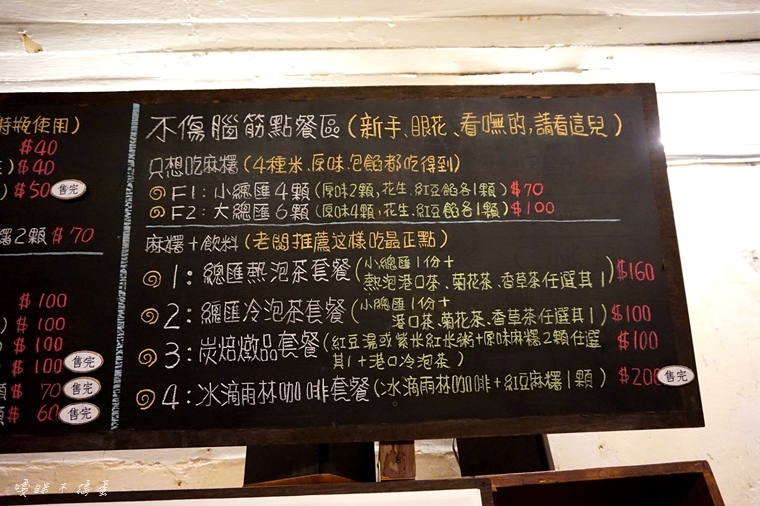 持瓶使用)
$40
$40
$50 售完
糬2顆 $70
$100
$100
$100
$100 售完
顆 $70 售完
顆 $60 售完
不傷腦筋點餐區(新手、眼花、看嘸的,請看這兒)
只想吃麻糬(4種米、原味、包餡都吃得到)
F1:小總匯4顆(原味2顆,花生、紅豆餡各1顆)$70
F2:大總匯6顆(原味4顆,花生、紅豆餡各1顆)$100
麻糬+飲料(老闆推薦这樣吃最正點)
1:總匯熱泡茶套餐(小總匯1份+
熱泡港口茶、菊花茶、香草茶任選其1)$160
2:總匯冷泡茶套餐(小總匯1份+
港口茶、菊花茶、香草茶任選其1)$100
3:炭焙燉品套餐(紅豆湯或紫米紅米粥+原味麻糬2顆任選
其1+港口冷泡茶) $100
4:冰滴雨林咖啡套餐(冰滴雨林咖啡+紅豆麻糬1顆) $200 售完